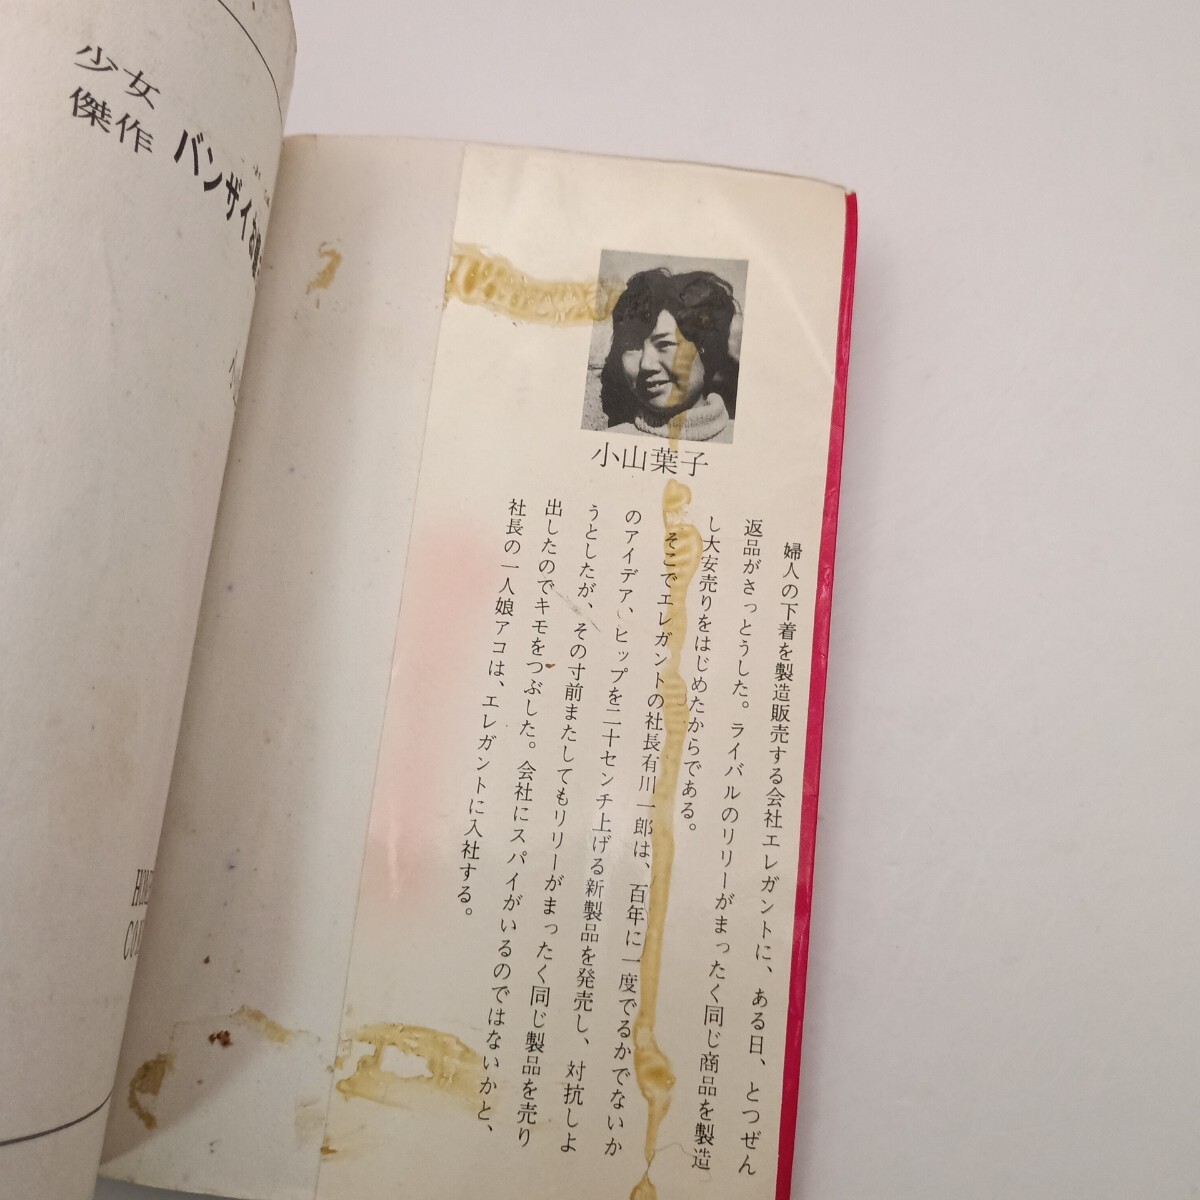 少女
傑作
バンザイ
小山葉子
婦人の下着を製造販売する会社エレガントに、ある日、とつぜん
返品がさっとうした。ライバルのリリーがまったく同じ商品を製造
し大安売りをはじめたからである。
そこでエレガントの社長有川一郎は、百年に一度でるかでないか
のアイデア、ヒップを二十センチ上げる新製品を発売し、対抗しよ
うとしたが、その寸前またしてもリリーがまったく同じ製品を売り
出したのでキモをつぶした。会社にスパイがいるのではないかと、
社長の一人娘アコは、エレガントに入社する。